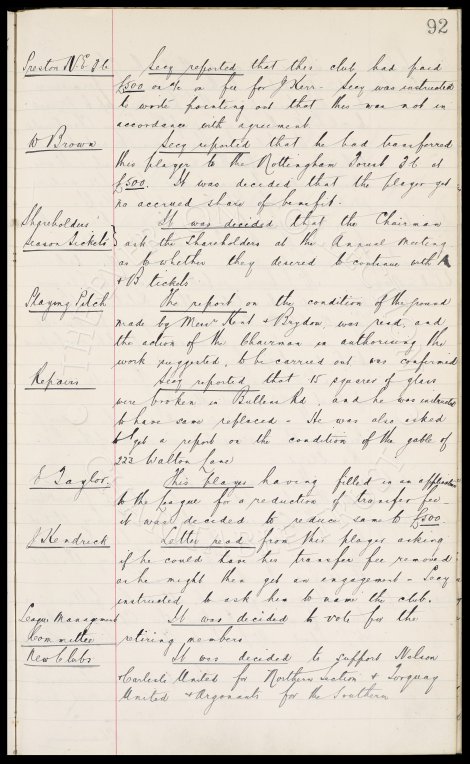 92
Preston N.E. Fc Secy reported that this club had paid
£500 on a/c on fee for J Kerr - Secy was instructed
to write pointing out that this was not in
accordance with agreement
W Brown Secy reported that he had transferred
this player to the Nottingham Forest Fc at
£500. It was decided that the player get
no accrued share of benefit.
Shareholders' It was decided that the Chairman
Season Tickets } ask the Shareholders at the Annual Meeting
as to whether they desired to continue with A
& B tickets
Playing Pitch The report on the condition of the ground
made by Messrs Kent & Brydon, was read, and
the action of the Chairman in authorising the
work suggested, to be carried out was confirmed
Repairs Secy reported, that 15 squares of glass
were broken in Bullens Rd, and he was instructed
to have same replaced - He was also asked
to get a report on the condition of the gable of
222 Walton Lane
E Taylor. This player having filled in an application
to the League for a reduction of transfer fee
it was decided to reduce same to £500
J Kendrick Letter read from this player asking
if he could have his transfer fee removed
as he might then get an engagement - Secy
instructed to ask him to name the club.
League Managment It was decided to vote for the
Committee retiring members
New Clubs It was decided to support Nelson
& Carlisle United for Northern Section & Torquay
United & Argonauts for the Southern